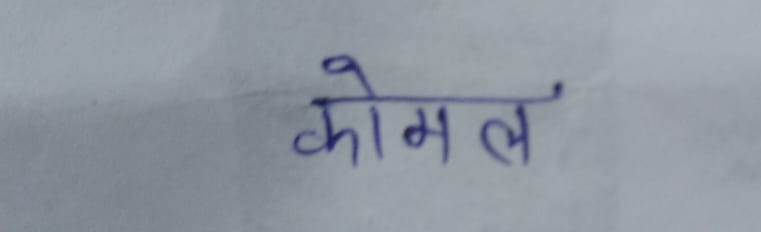 कोमल